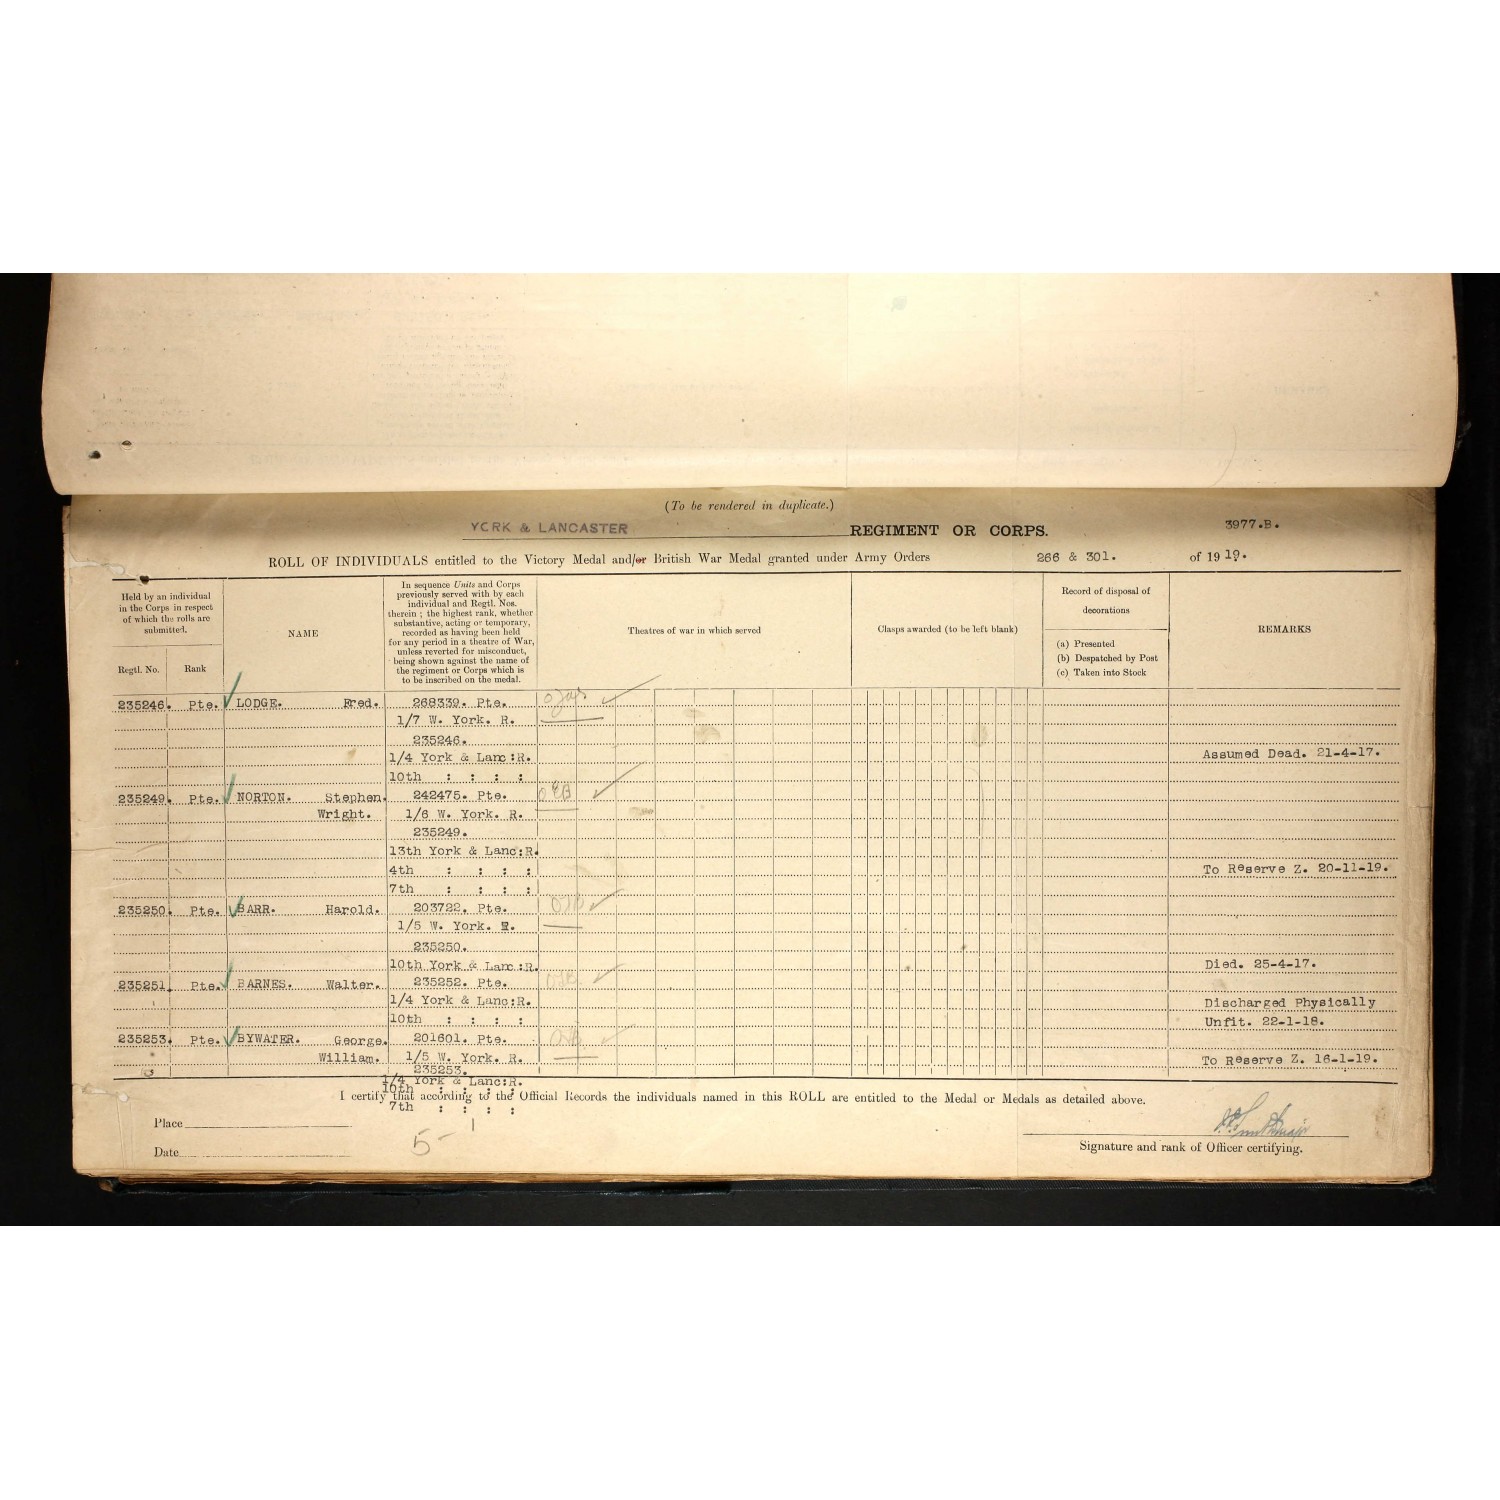 (To be rendered in duplicate.)
YORK & LANCASTER REGIMENT OR CORPS. 3977.B.
ROLL OF INDIVIDUALS entitled to the Victory Medal and/or British War Medal granted under Army Orders 266 & 301. of 1919.
Held by an individual in the Corps in respect of which the rolls are submitted.
Regtl. No. Rank
NAME
In sequence Units and Corps
previously served with by each
individual and Regtl. Nos.
therein ; the highest rank, whether
substantive, acting or temporary,
recorded as having been held
for any period in a theatre of War,
unless reverted for misconduct,
being shown against the name of
the regiment or Corps which is
to be inscribed on the medal.
Theatres of war in which served
Clasps awarded (to be left blank)
Record of disposal of
decorations
(a) Presented
(b) Despatched by Post
(c) Taken into Stock
REMARKS
235246. Pte. LODGE. Fred. 268339. Pte.
1/7 W. York. R.
235246.
1/4 York & Lanc:R. Assumed Dead. 21-4-17.
10th : : : :
235249. Pte. NORTON. Stephen. 242475. Pte.
Wright. 1/6 W. York. R.
235249.
13th York & Lanc:R.
4th : : : : To Reserve Z. 20-11-19.
7th : : : :
235250. Pte. BARR. Harold. 203722. Pte.
1/5 W. York. R.
235250.
10th York & Lanc:R. Died. 25-4-17.
235251. Pte. BARNES. Walter. 235252. Pte.
1/4 York & Lanc:R. Discharged Physically
10th : : : : Unfit. 22-1-18.
235253. Pte. BYWATER. George. 201601. Pte.
William. 1/5 W. York. R. To Reserve Z. 16-1-19.
235253.
1/4 York & Lanc:R.
10th : : : :
I certify that according to the Official Records the individuals named in this ROLL are entitled to the Medal or Medals as detailed above.
7th : : : :
Place
5-1
Date
Signature and rank of Officer certifying.